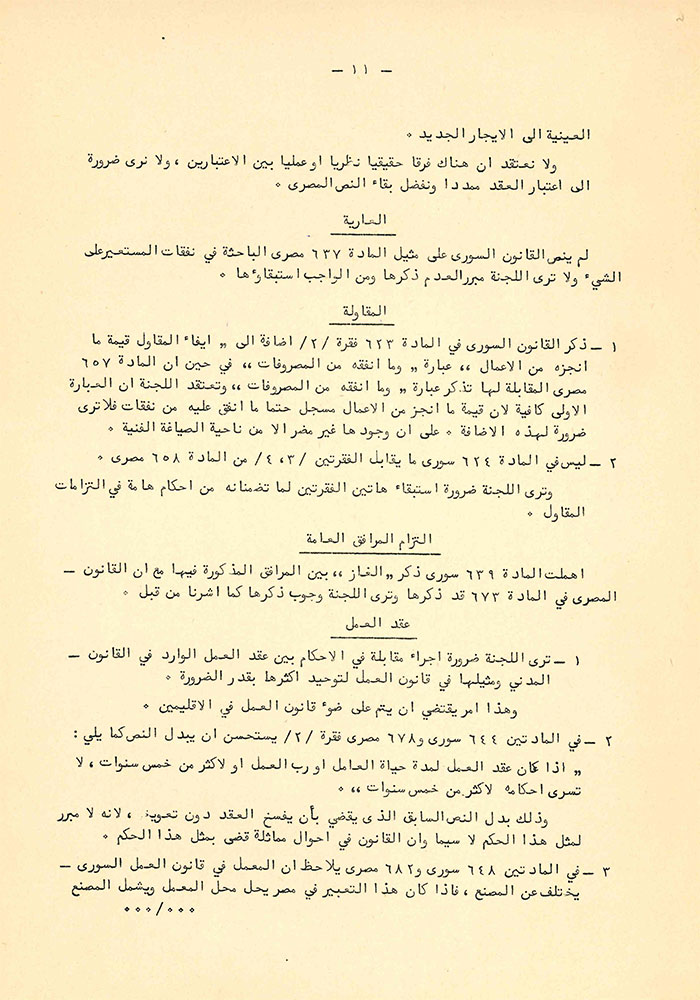 — ١١ —
العينية الى الايجار الجديد ٠
ولا نعتقد ان هناك فرقا حقيقيا نظريا او عمليا بين الاعتبارين ، ولا نرى ضرورة
الى اعتبار العقد ممددا ونفضل بقاء النص المصرى ٠
العارية
لم ينص القانون السورى على مثيل المادة ٦٣٧ مصرى الباحثة في نفقات المستعير على
الشيء ولا ترى اللجنة مبرر العدم ذكرها ومن الواجب استبقاؤها ٠
المقاولة
١ — ذكر القانون السورى في المادة ٦٢٣ فقرة /٢/ اضافة الى „ ايفاء المقاول قيمة ما
انجزه من الاعمال ،، عبارة „ وما انفقه من المصروفات ،، في حين ان المادة ٦٥٧
مصرى المقابلة لها تذكر عبارة „ وما انفقه من المصروفات ،، وتعتقد اللجنة ان العبارة
الاولى كافية لان قيمة ما انجز من الاعمال مسجل حتما ما انفق عليه من نفقات فلا ترى
ضرورة لهذه الاضافة ٠ على ان وجودها غير مضر الا من ناحية الصياغة الفنية ٠
٢ — ليس في المادة ٦٢٤ سورى ما يقابل الفقرتين /٣، ٤/ من المادة ٦٥٨ مصرى ٠
وترى اللجنة ضرورة استبقاء هاتين الفقرتين لما تضمنانه من احكام هامة في التزامات
المقاول ٠
التزام المرافق العامة
اهملت المادة ٦٣٩ سورى ذكر „ الغاز ،، بين المرافق المذكورة فيها مع ان القانون —
المصرى في المادة ٦٧٣ قد ذكرها وترى اللجنة وجوب ذكرها كما اشرنا من قبل ٠
عقد العمل
١ — ترى اللجنة ضرورة اجراء مقابلة في الاحكام بين عقد العمل الوارد في القانون —
المدني ومثيلها في قانون العمل لتوحيد اكثرها بقدر الضرورة ٠
وهذا امر يقتضي ان يتم على ضوء قانون العمل في الاقليمين ٠
٢ — في المادتين ٦٤٤ سورى و٦٧٨ مصرى فقرة /٢/ يستحسن ان يبدل النص كما يلي :
„ اذا كان عقد العمل لمدة حياة العامل او رب العمل او لاكثر من خمس سنوات ، لا
تسرى احكامه لاكثر من خمس سنوات ،، ٠
وذلك بدل النص السابق الذى يقضي بأن يفسخ العقد دون تعويض ، لانه لا مبرر
لمثل هذا الحكم لا سيما وان القانون في احوال مماثلة قضى بمثل هذا الحكم ٠
٣ — في المادتين ٦٤٨ سورى و٦٨٢ مصرى يلاحظ ان المعمل في قانون العمل السورى —
يختلف عن المصنع ، فاذا كان هذا التعبير في مصر يحل محل المعمل ويشمل المصنع
٠٠٠/٠٠٠